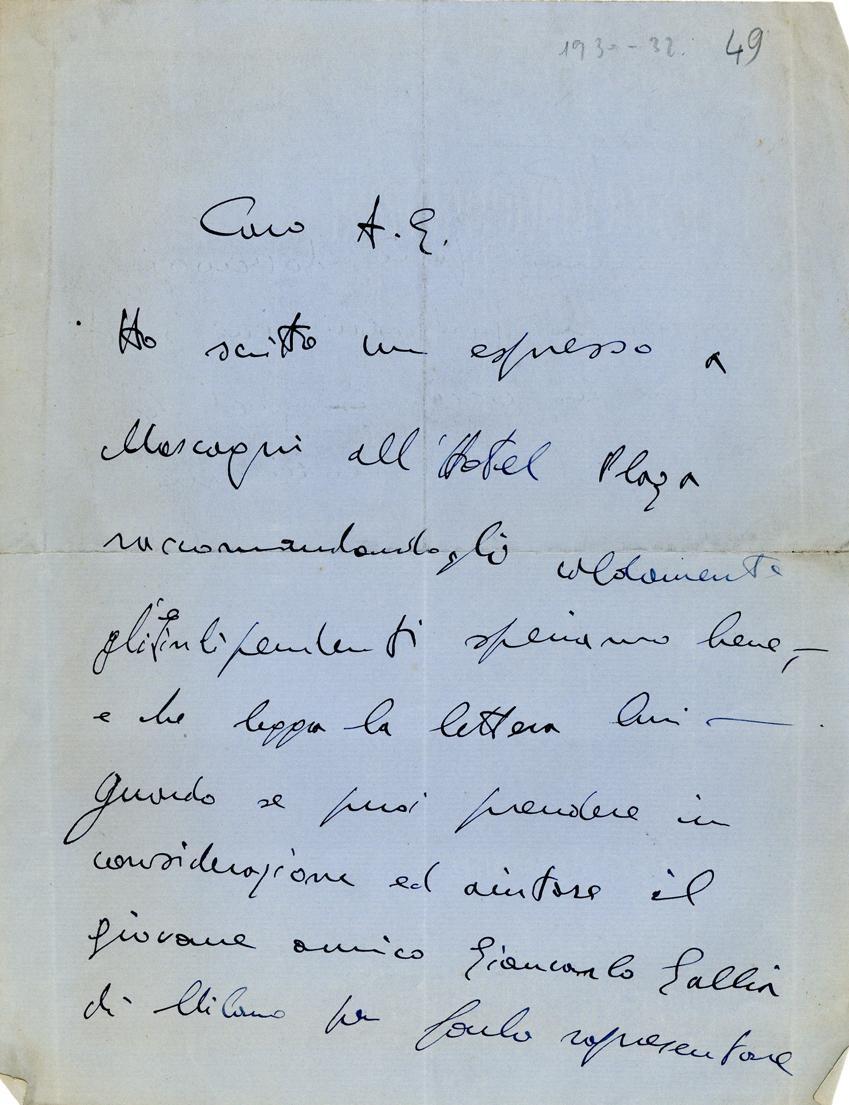 1930-32. 49
Caro A. G.
Ho scritto un espresso a
Mascagni all'Hotel Plaza
raccomandandogli caldamente
gli Indipendenti speriamo bene, —
e che legga la lettera lui —
Guarda se puoi prendere in
considerazione ed aiutare il
giovane amico Giancarlo
di Milano per farlo rapresentare